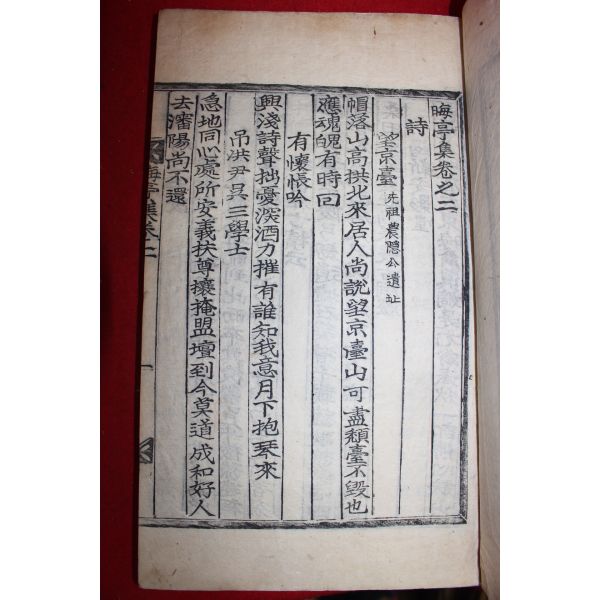 晦亭集卷之二
詩
望京臺 先祖農隱公遺址
帽落山高拱北來居人尚說望京臺山可盡頹臺不毀也
應魂魄有時回
有懷悵吟
興淺詩聲拙憂深酒力摧有誰知我意月下抱琴來
吊洪尹吳三學士
急地同心處所安義扶尊攘掩盟壇到今莫道成和好人
去瀋陽尚不還
晦亭集卷二
一